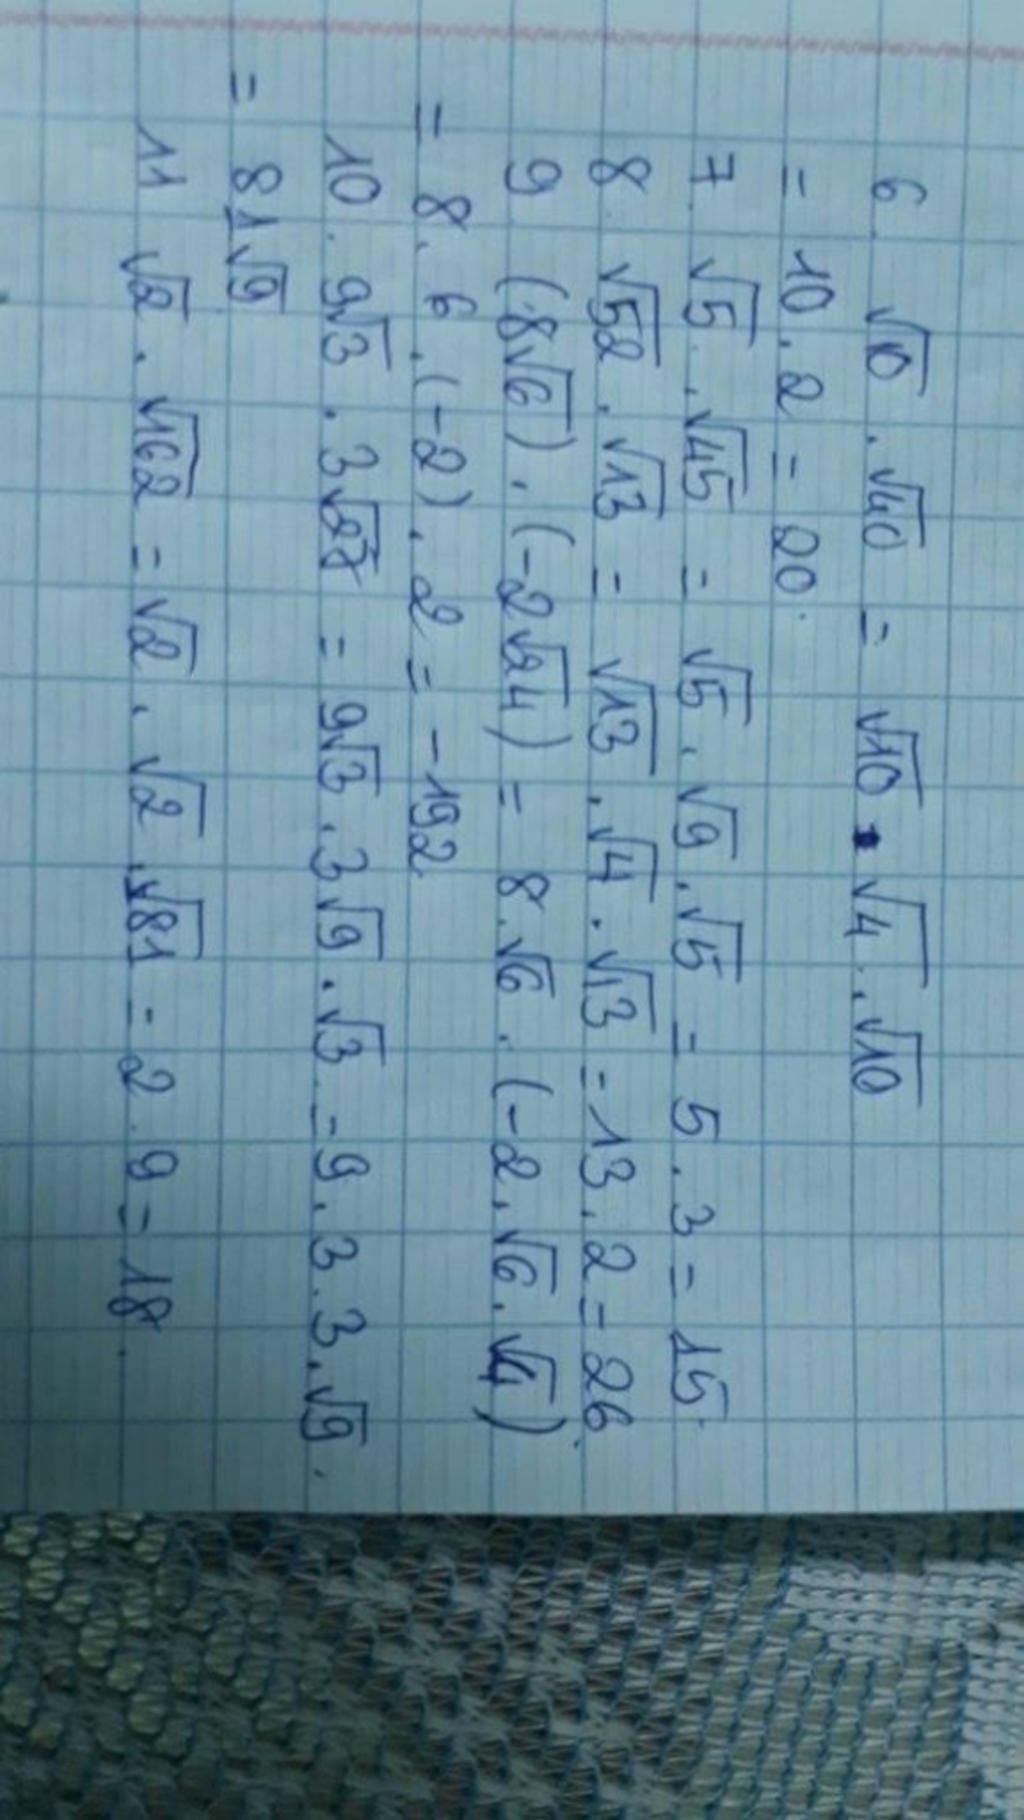 6. √10 . √40 = √10 . √4 . √10
= 10 . 2 = 20.
7. √5 . √45 = √5 . √9 . √5 = 5 . 3 = 15.
8. √52 . √13 = √13 . √4 . √13 = 13 . 2 = 26
9 (8√6) . (-2√24) = 8 . √6 . (-2 . √6 . √4).
= 8 . 6 . (-2) . 2 = -192
10. 9√3 . 3√27 = 9√3 . 3√9 . √3 = 9 . 3 . 3 . √9.
= 81√9
11 √2 . √162 = √2 . √2 . √81 = 2 . 9 = 18.